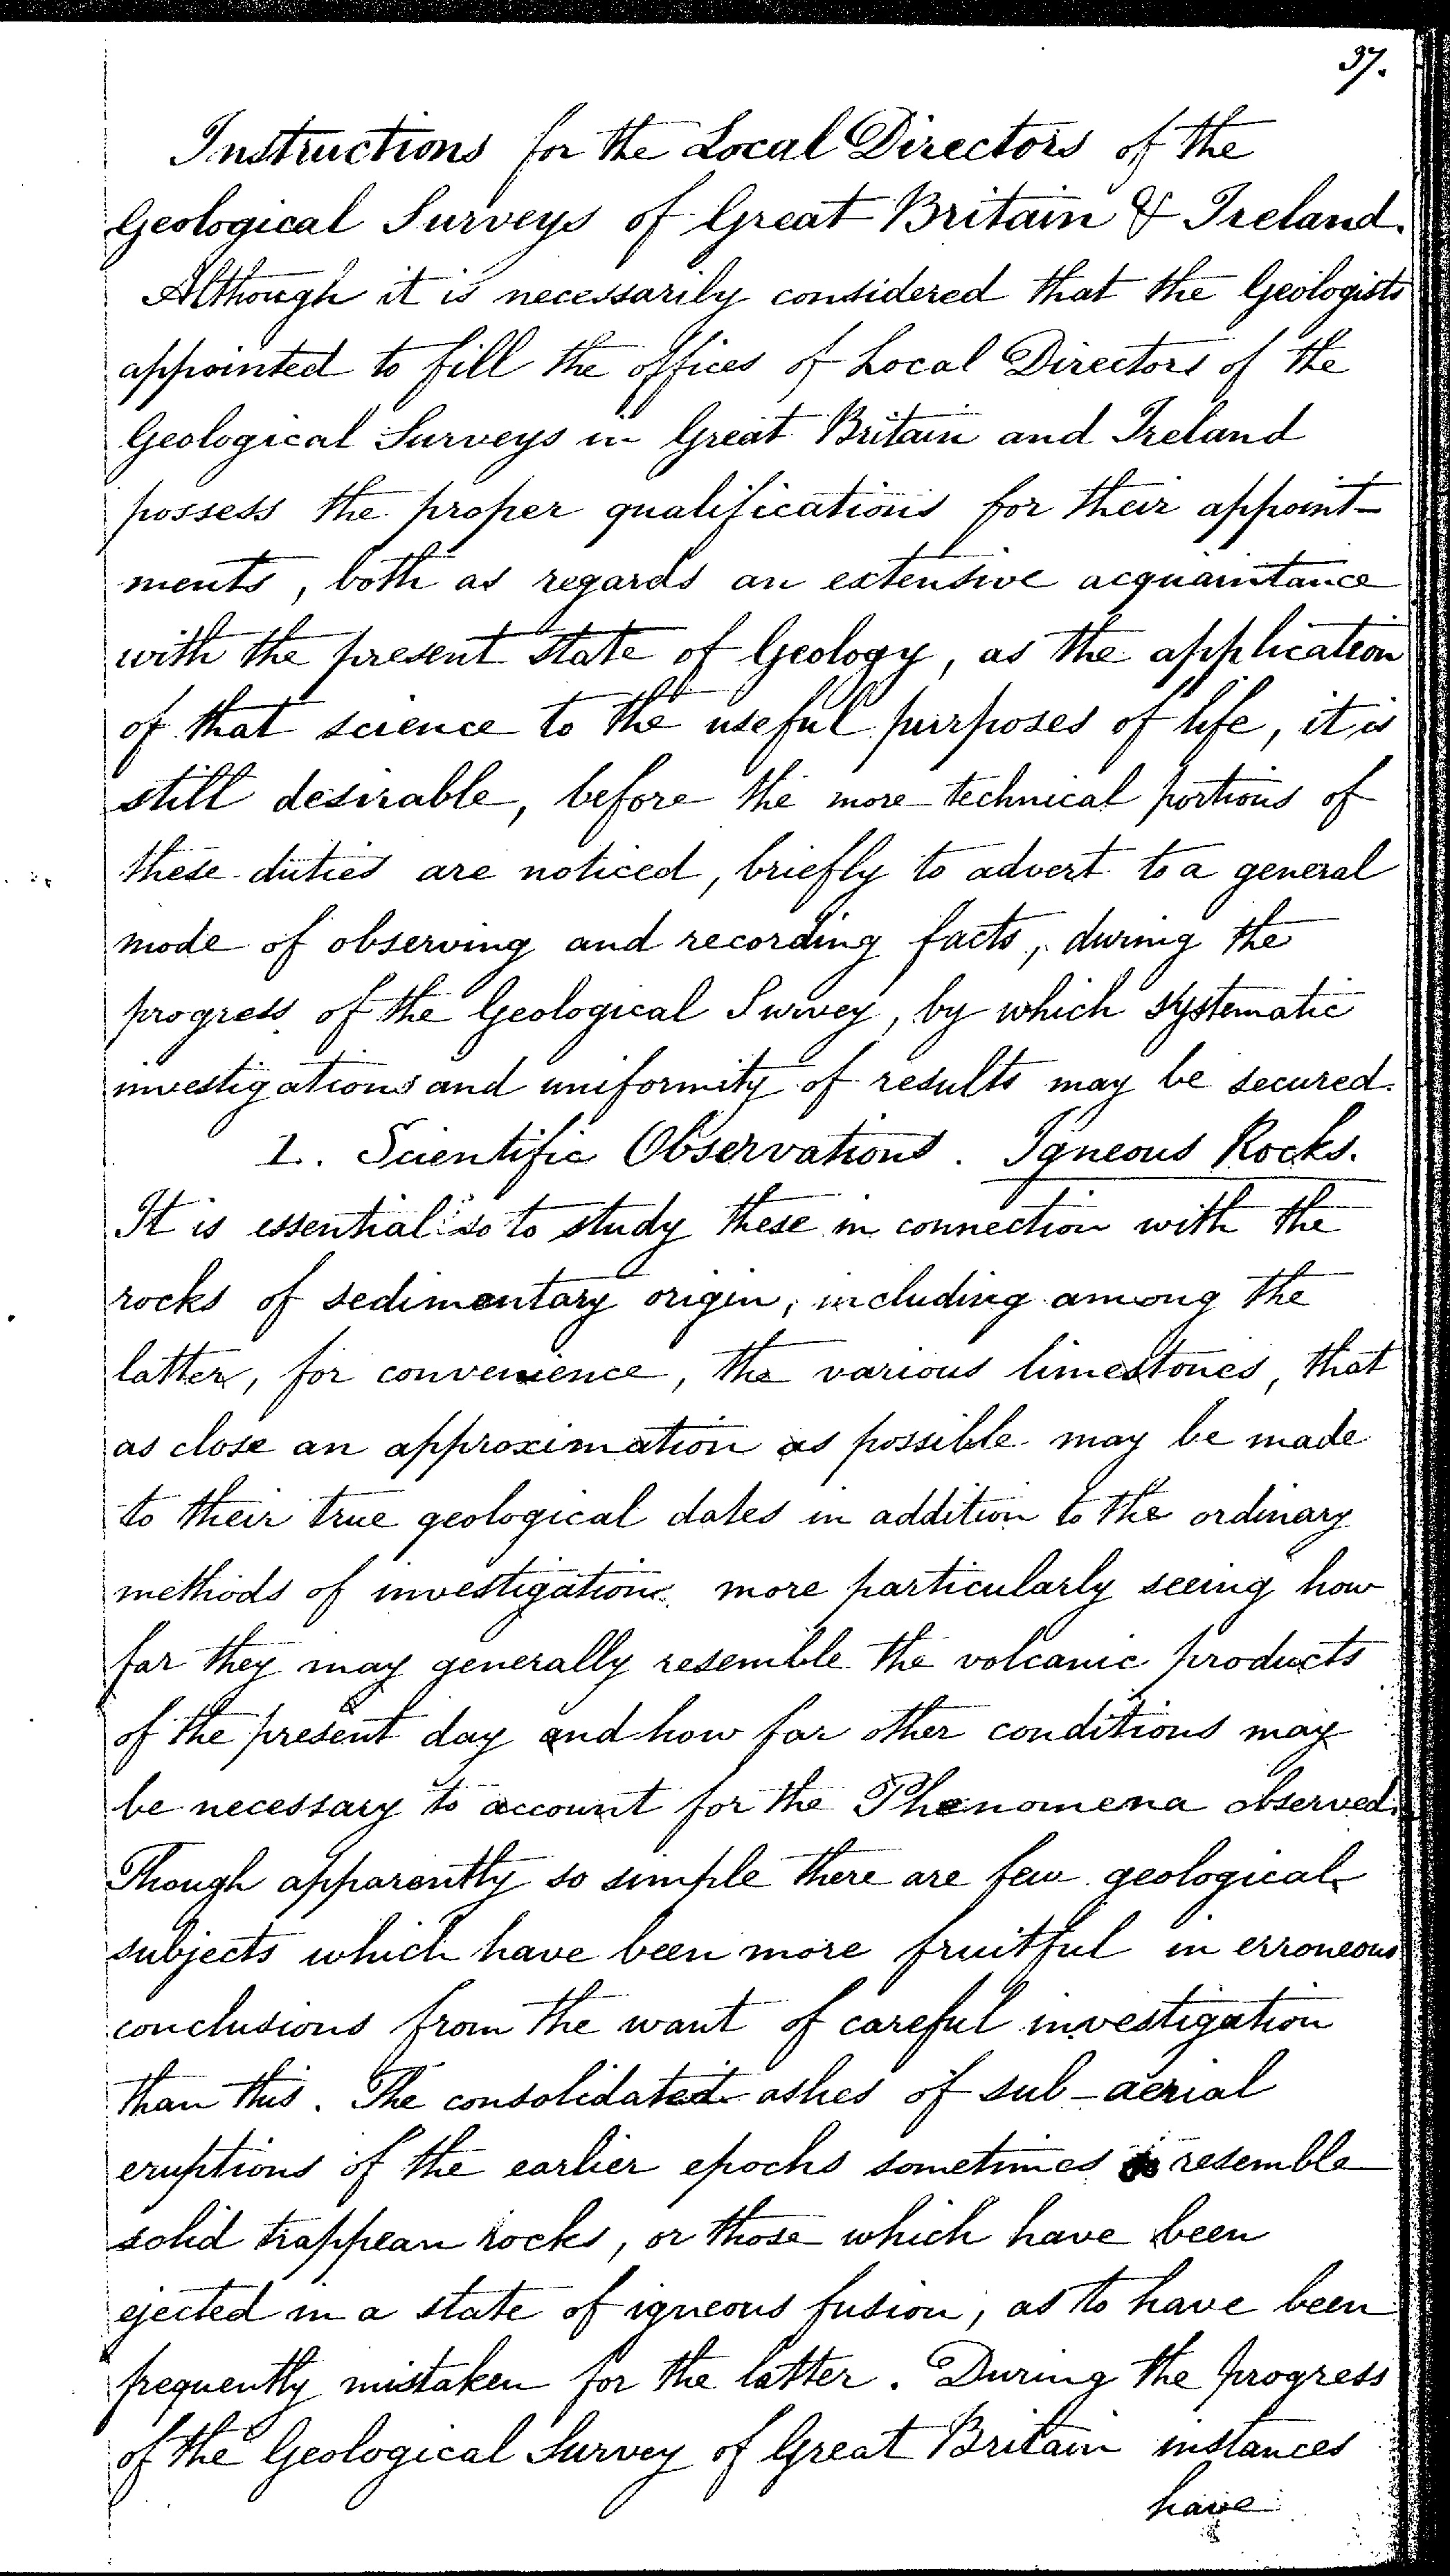 37.
Instructions for the Local Directors of the
Geological Surveys of Great Britain & Ireland.
Although it is necessarily considered that the Geologists
appointed to fill the offices of Local Directors of the
Geological Surveys in Great Britain and Ireland
possess the proper qualifications for their appoint-
ments, both as regards an extensive acquaintance
with the present state of Geology, as the application
of that science to the useful purposes of life, it is
still desirable, before the more technical portions of
these duties are noticed, briefly to advert to a general
mode of observing and recording facts, during the
progress of the Geological Survey, by which systematic
investigations and uniformity of results may be secured.
1. Scientific Observations. Igneous Rocks.
It is essential so to study these in connection with the
rocks of sedimentary origin, including among the
latter, for convenience, the various limestones, that
as close an approximation as possible may be made
to their true geological dates in addition to the ordinary
methods of investigation, more particularly seeing how
far they may generally resemble the volcanic products
of the present day and how far other conditions may
be necessary to account for the Phenomena observed.
Though apparently so simple there are few geological
subjects which have been more fruitful in erroneous
conclusions from the want of careful investigation
than this. The consolidated ashes of sub-aerial
eruptions of the earlier epochs sometimes so resemble
solid trappean rocks, or those which have been
ejected in a state of igneous fusion, as to have been
frequently mistaken for the latter. During the progress
of the Geological Survey of Great Britain instances
have